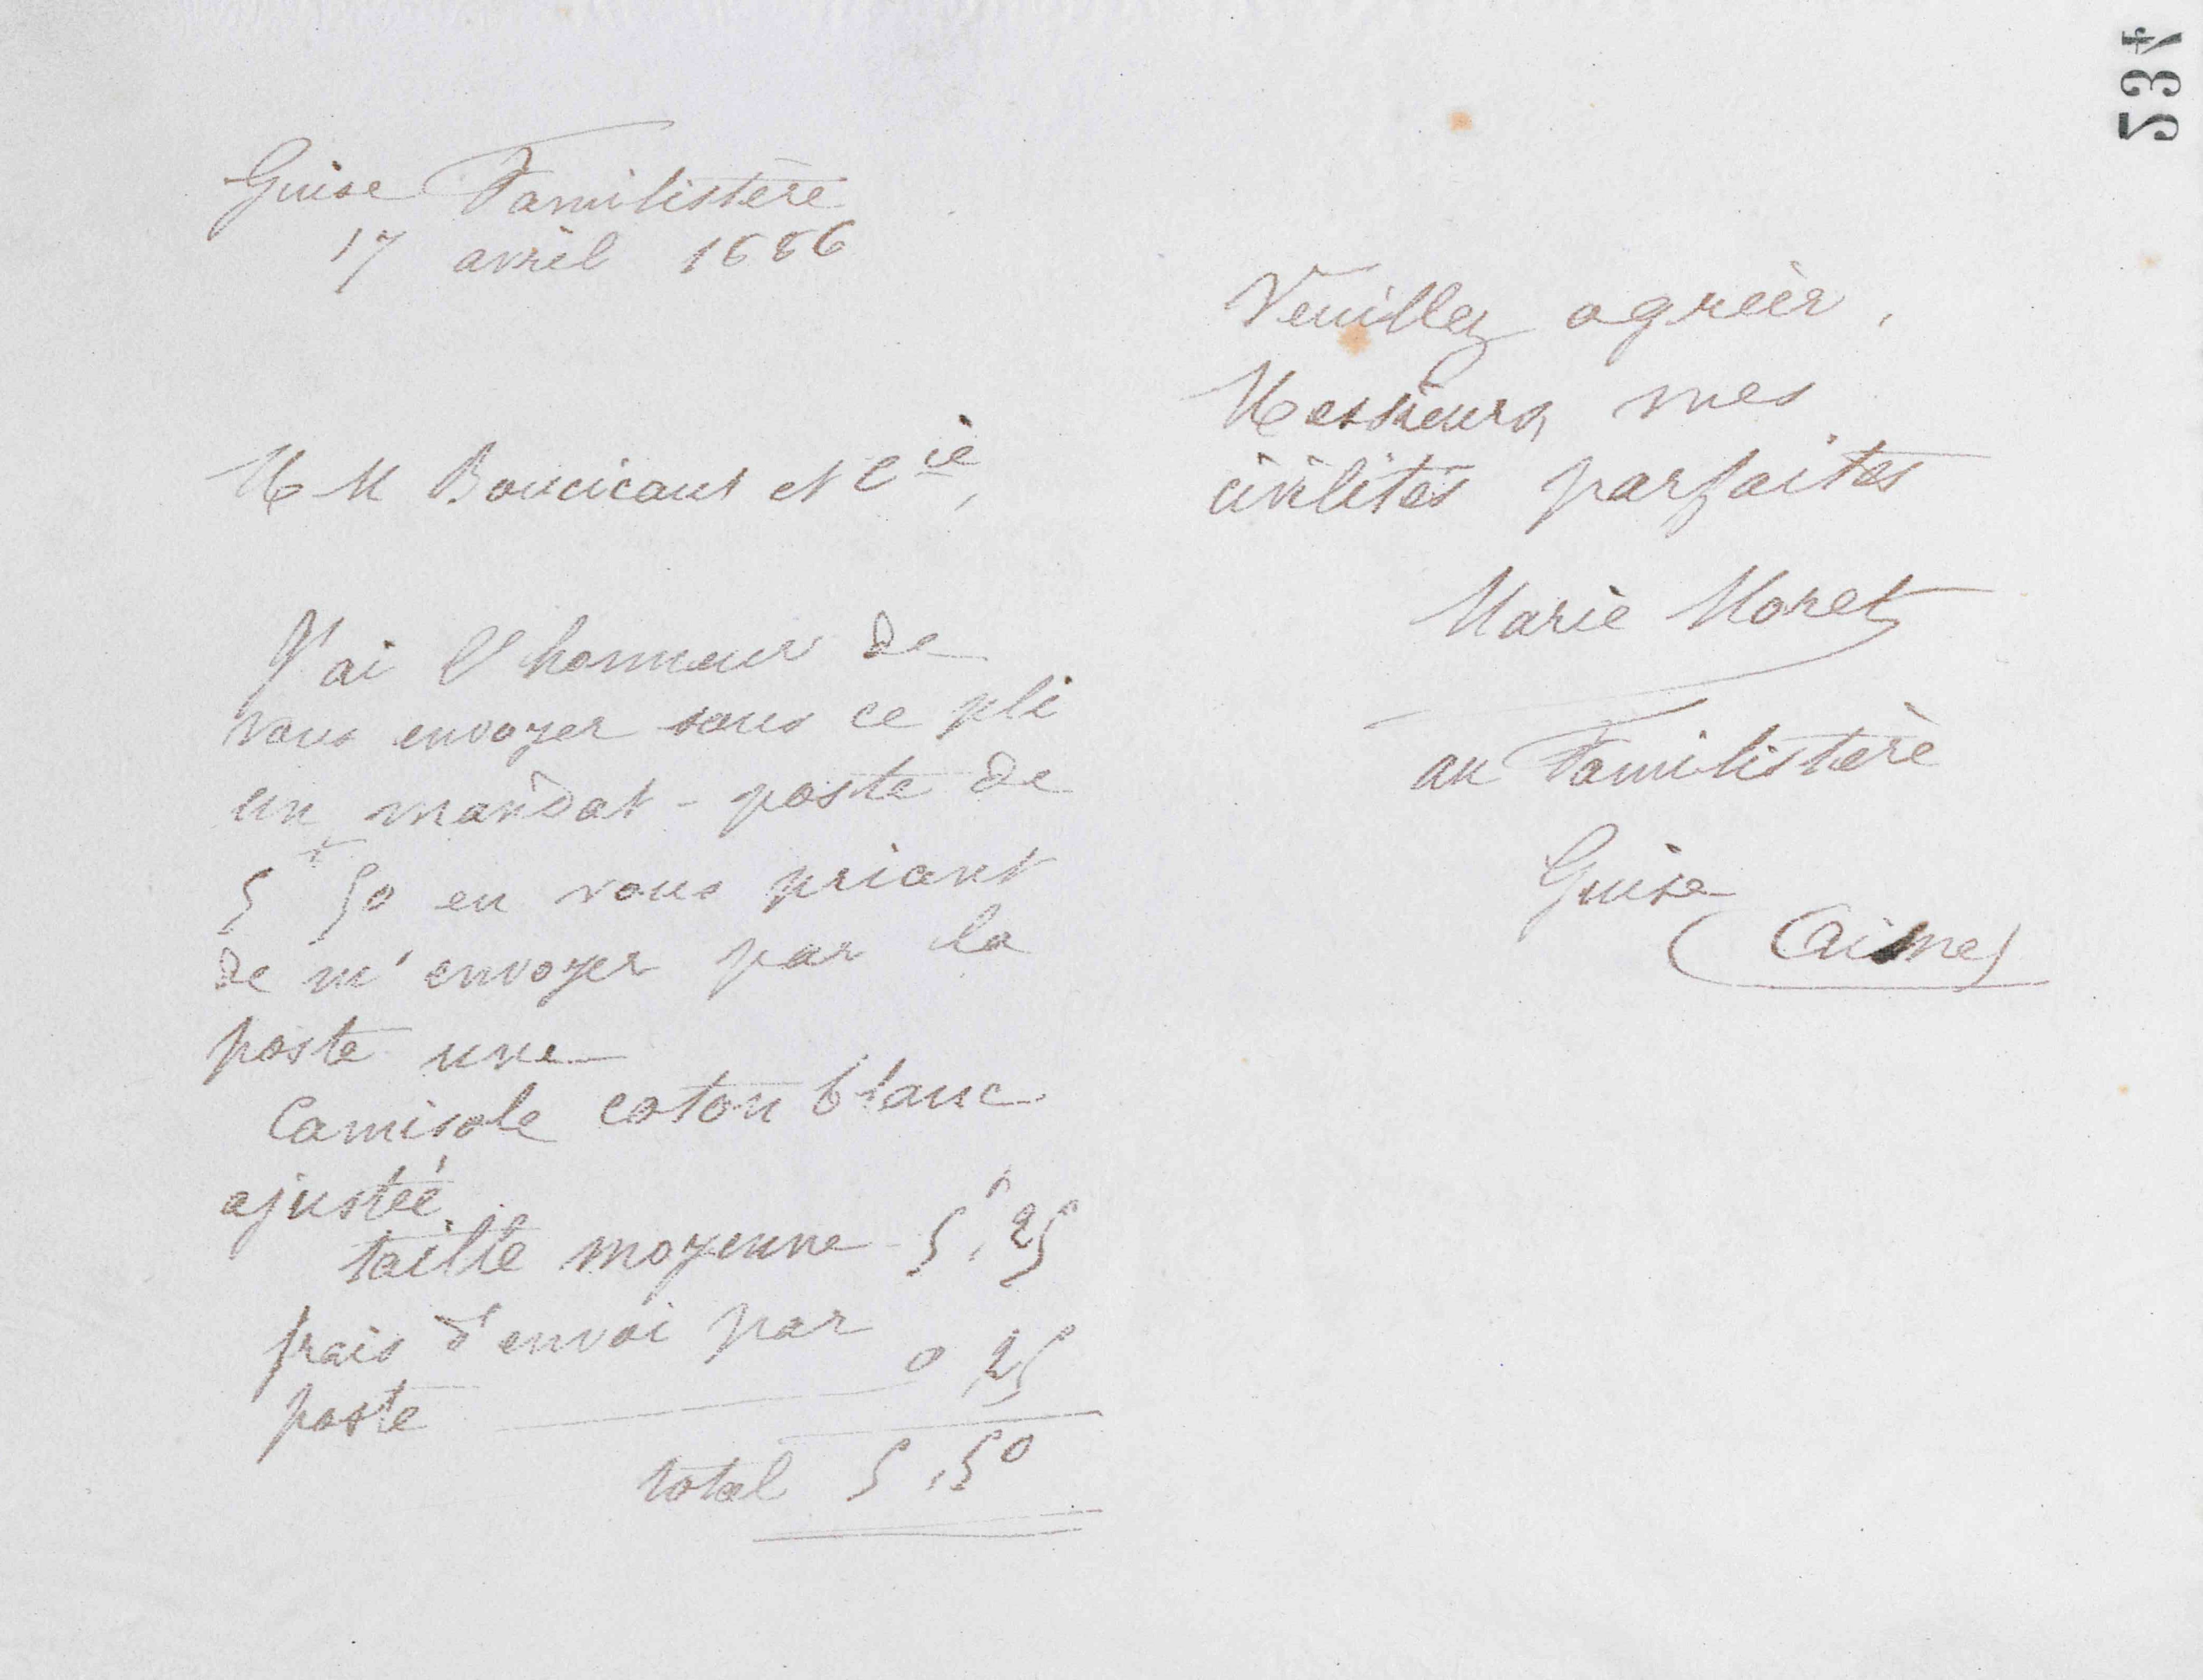 Guise Familistère
17 avril 1886
MM Boucicaut et Cie,
J'ai l'honneur de
vous envoyer sous ce pli
un mandat-poste de
5f 50 en vous priant
de m'envoyer par la
poste une
Camisole coton blanc
ajustée
taille moyenne 5f,25
frais d'envoi par
poste 0 25
total 5,50
Veuillez agréer,
Messieurs, mes
civilités parfaites
Marie Moret
au Familistère
Guise
(Aisne)
534